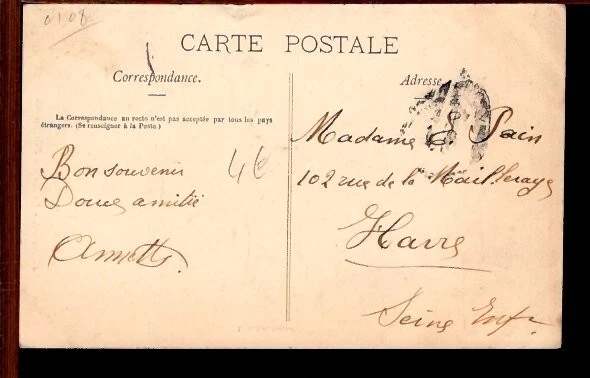 CARTE POSTALE
Correspondance.
La Correspondance au recto n'est pas acceptée par tous les pays
étrangers. (Se renseigner à la Poste.)
Bon souvenir
Douce amitié
Annette
4€
Adresse
Madame Pain
102 rue de la Mailleraye
Havre
Seine Infre